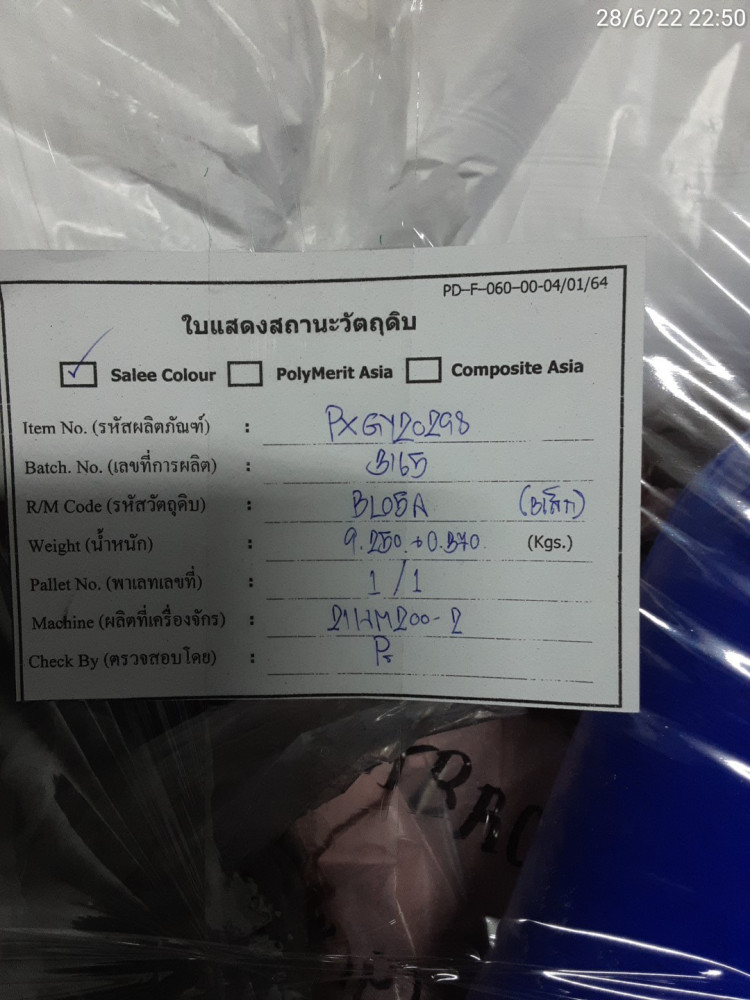 28/6/22 22:50
PD-F-060-00-04/01/64
ใบแสดงสถานะวัตถุดิบ
Salee Colour PolyMerit Asia Composite Asia
Item No. (รหัสผลิตภัณฑ์) : PXGY20298
Batch. No. (เลขที่การผลิต) : B165
R/M Code (รหัสวัตถุดิบ) : BL05A
Weight (น้ำหนัก) : 9.250 + 0.370 (Kgs.)
Pallet No. (พาเลทเลขที่) : 1/1
Machine (ผลิตที่เครื่องจักร) : 21HM200-2
Check By (ตรวจสอบโดย) :